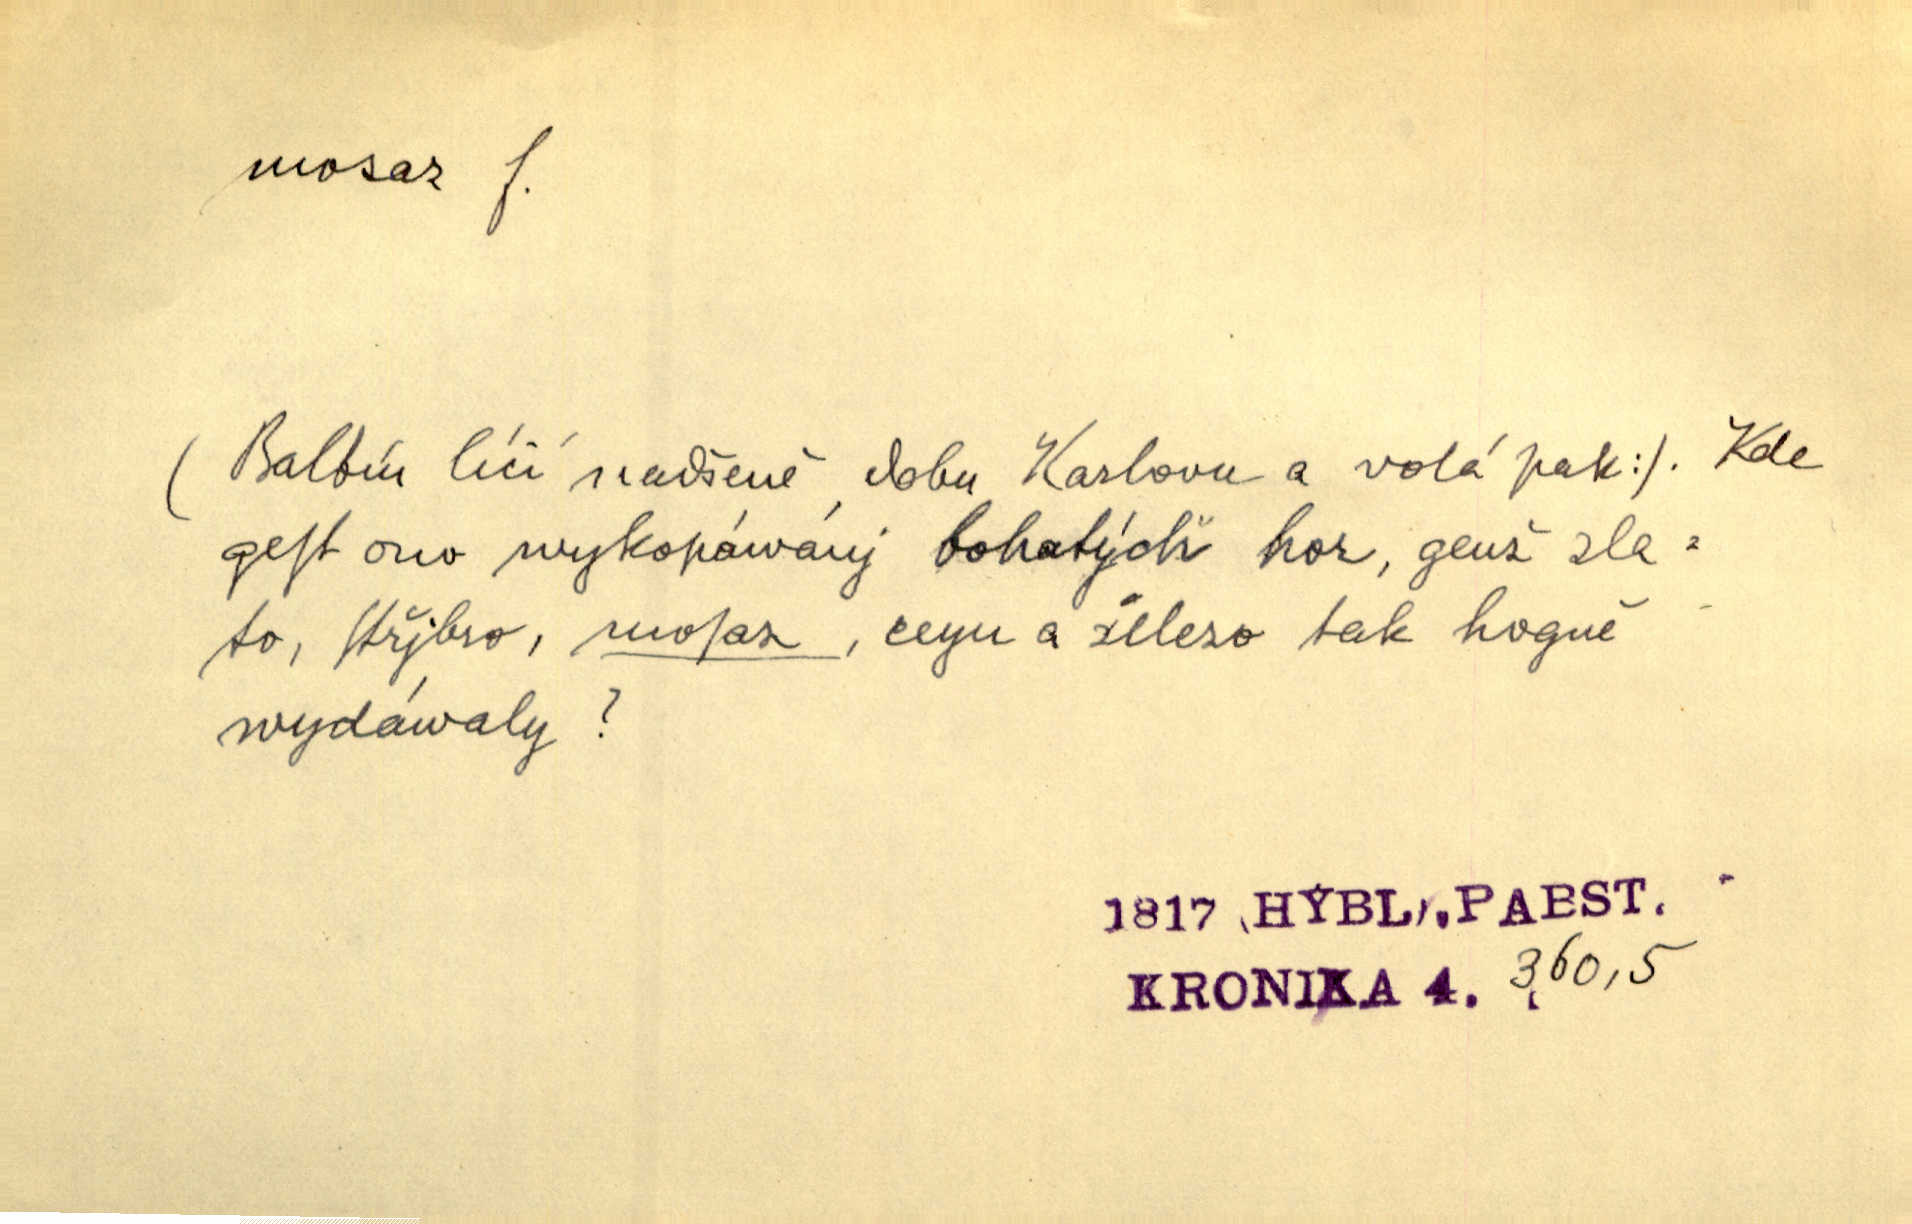 mosaz f.
(Balbín líčí nadšeně dobu Karlovu a volá pak:). Kde
geſt ono wykopáwánj bohatých hor, genž zla=
to, ſtřjbro, moſaz, cegn a železo tak hogně
wydáwaly?
1817 (HÝBL), PABST.
KRONIKA 4. 360,5